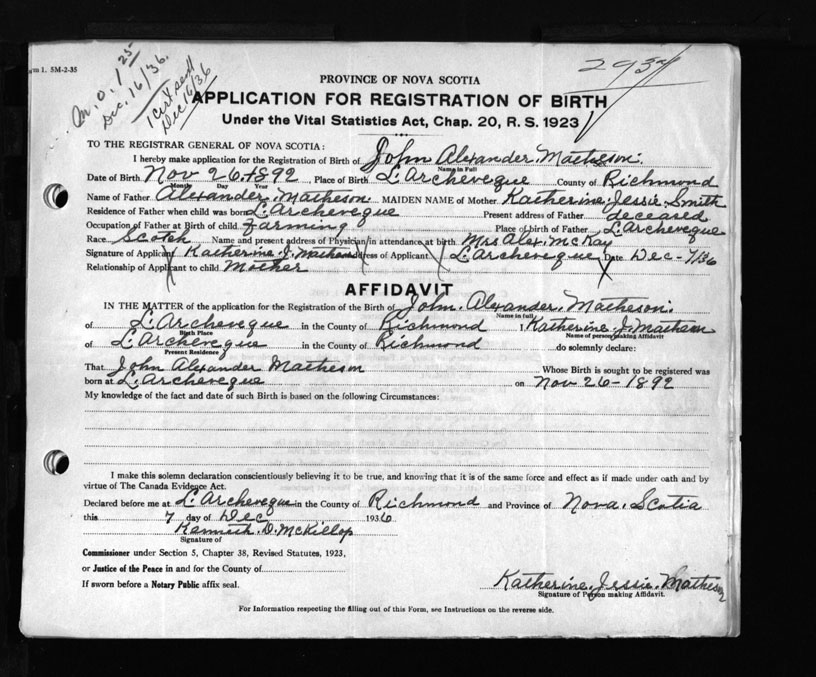 rm 1. 5M-2-35
M. O. 1 25
Dec. 16/36.
1 Cert sent
Dec 16/36
2934
PROVINCE OF NOVA SCOTIA
APPLICATION FOR REGISTRATION OF BIRTH
Under the Vital Statistics Act, Chap. 20, R. S. 1923
TO THE REGISTRAR GENERAL OF NOVA SCOTIA:
I hereby make application for the Registration of Birth of John Alexander Matheson.
Name in Full
Date of Birth Nov 26 1892, Place of Birth L'Archeveque County of Richmond
Month Day Year
Name of Father Alexander Matheson. MAIDEN NAME of Mother Katherine Jessie Smith
Residence of Father when child was born L'Archeveque Present address of Father deceased
Occupation of Father at Birth of child Farming Place of birth of Father L'Archeveque
Race Scotch Name and present address of Physician in attendance at birth Mrs Alex. McKay
Signature of Applicant Katherine J. Matheson Address of Applicant L'Archeveque Date Dec-7/36
Relationship of Applicant to child Mother
AFFIDAVIT
IN THE MATTER of the application for the Registration of the Birth of John. Alexander. Matheson.
Name in full
of L'Archeveque in the County of Richmond I Katherine J. Matheson
Birth Place Name of person making Affidavit
of L'Archeveque in the County of Richmond do solemnly declare:
Present Residence
That John Alexander Matheson Whose Birth is sought to be registered was
born at L'Archeveque on Nov 26-1892
My knowledge of the fact and date of such Birth is based on the following Circumstances:
I make this solemn declaration conscientiously believing it to be true, and knowing that it is of the same force and effect as if made under oath and by
virtue of The Canada Evidence Act.
Declared before me at L'Archeveque in the County of Richmond and Province of Nova Scotia
this 7 day of Dec 1936
Kenneth D. McKillop
Signature of
Commissioner under Section 5, Chapter 38, Revised Statutes, 1923,
or Justice of the Peace in and for the County of
If sworn before a Notary Public affix seal.
Katherine Jessie Matheson
Signature of Person making Affidavit.
For Information respecting the filling out of this Form, see Instructions on the reverse side.